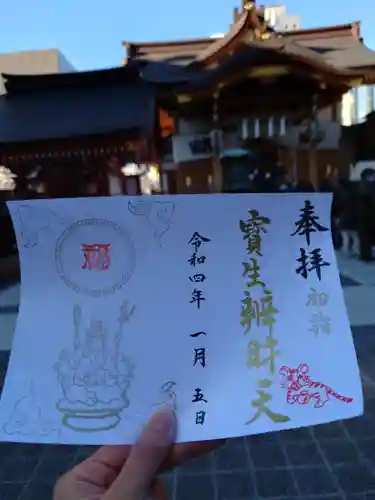 奉拝
初詣
寳生辨財天
令和四年 一月 五日